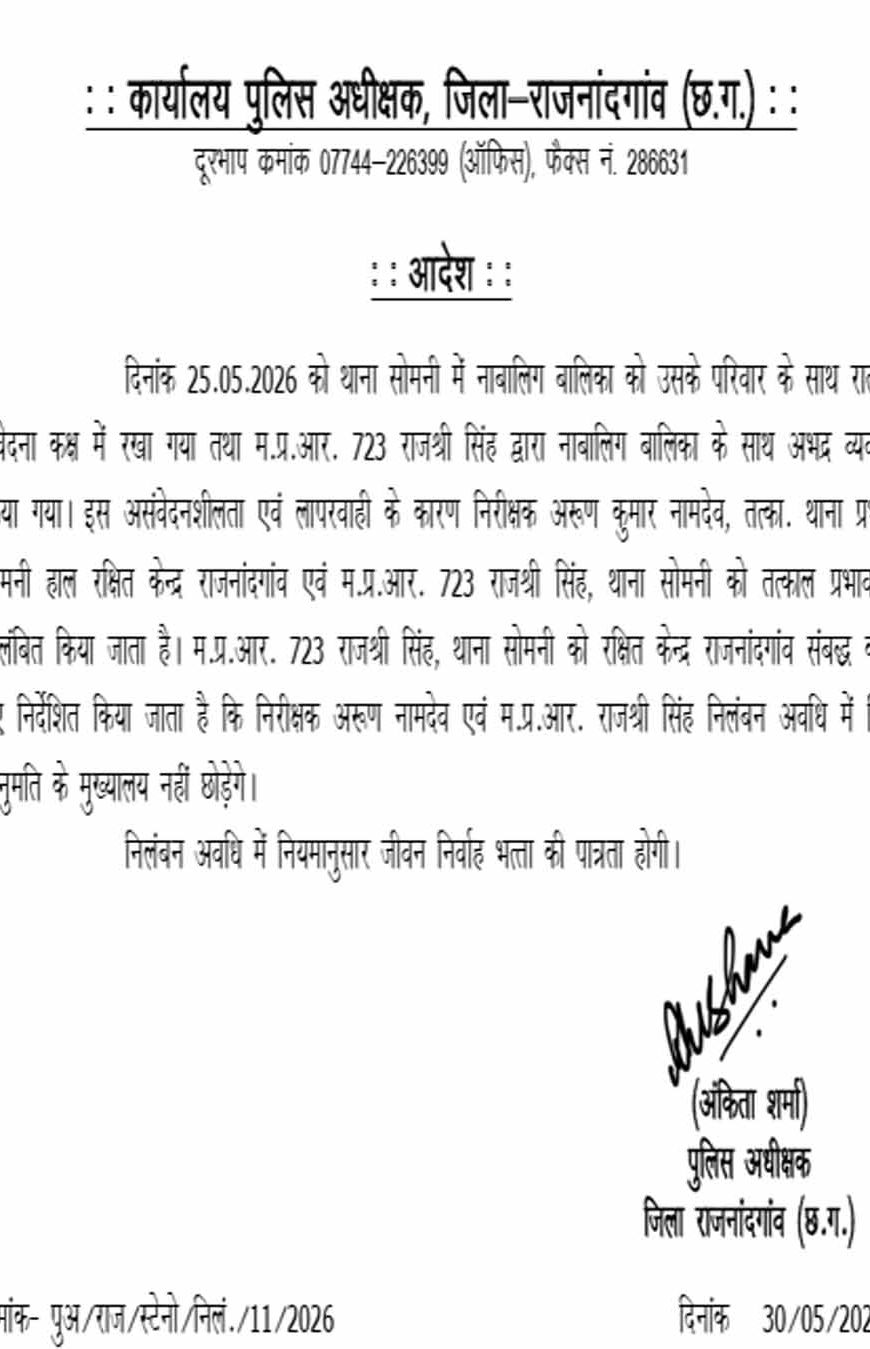 : : कार्यालय पुलिस अधीक्षक, जिला–राजनांदगांव (छ.ग.) : :
दूरभाप कमांक 07744–226399 (ऑफिस), फैक्स नं. 286631
: : आदेश : :
दिनांक 25.05.2026 को थाना सोमनी में नाबालिग बालिका को उसके परिवार के साथ
कक्ष में रखा गया तथा म.प्र.आर. 723 राजश्री सिंह द्वारा नाबालिग बालिका के साथ अभद्र
गया। इस असंवेदनशीलता एवं लापरवाही के कारण निरीक्षक अरूण कुमार नामदेव, तत्का. थाना
हाल रक्षित केन्द्र राजनांदगांव एवं म.प्र.आर. 723 राजश्री सिंह, थाना सोमनी को तत्काल
किया जाता है। म.प्र.आर. 723 राजश्री सिंह, थाना सोमनी को रक्षित केन्द्र राजनांदगांव संबद्ध
निर्देशित किया जाता है कि निरीक्षक अरूण नामदेव एवं म.प्र.आर. राजश्री सिंह निलंबन अवधि में
के मुख्यालय नहीं छोड़ेगे।
निलंबन अवधि में नियमानुसार जीवन निर्वाह भत्ता की पात्रता होगी।
(अंकिता शर्मा)
पुलिस अधीक्षक
जिला राजनांदगांव (छ.ग.)
पुअ/राज/स्टेनो/निलं./11/2026
दिनांक 30/05/202